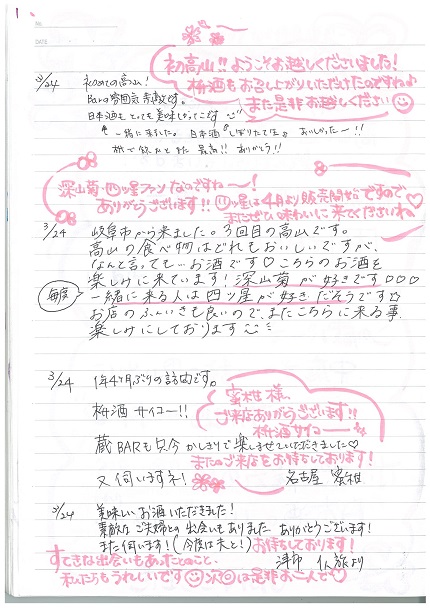 初高山!!ようこそお越しくださいました!
枡酒もお召し上がりいただけたのですね♪
また是非お越しください
3/24 初めての高山!
Barの雰囲気 素敵です。
日本酒もとっても美味しかったです
一緒に来ました。日本酒『しぼりたて生』おいしかったー!!
枡で飲んだとき 最高!! ありがとう!!
深山菊・四ツ星ファンなのですねー!
ありがとうございます!! 四ツ星は4月より販売開始ですので
またぜひ味わいに来てくださいね♡
3/24 岐阜市から来ました。3回目の高山です。
高山の食べ物はどれもおいしいですが、
なんと言っても…お酒です♡こちらのお酒を
毎度
楽しみに来ています!深山菊が好きです♡♡♡
一緒に来る人は四ツ星が好きだそうです☆
お店のふんいきも良いので、またこちらに来る事
楽しみにしております
3/24 1年4ヶ月ぶりの訪問です。
枡酒サイコー!!
蜜柑様、
ご来店ありがとうございます!!
枡酒サイコー
蔵BARも只今 楽しませていただきました♡
またのご来店をお待ちしております!
又伺いますネ! 名古屋 蜜柑
3/24 美味しいお酒いただきました!
素敵なご夫婦との出会いもありました ありがとうございます!
また伺います!(今度は夫と!) お待ちしております!
津市 より
すてきな出会いもあったとのこと、
私たちもうれしいです 次回は是非お二人で